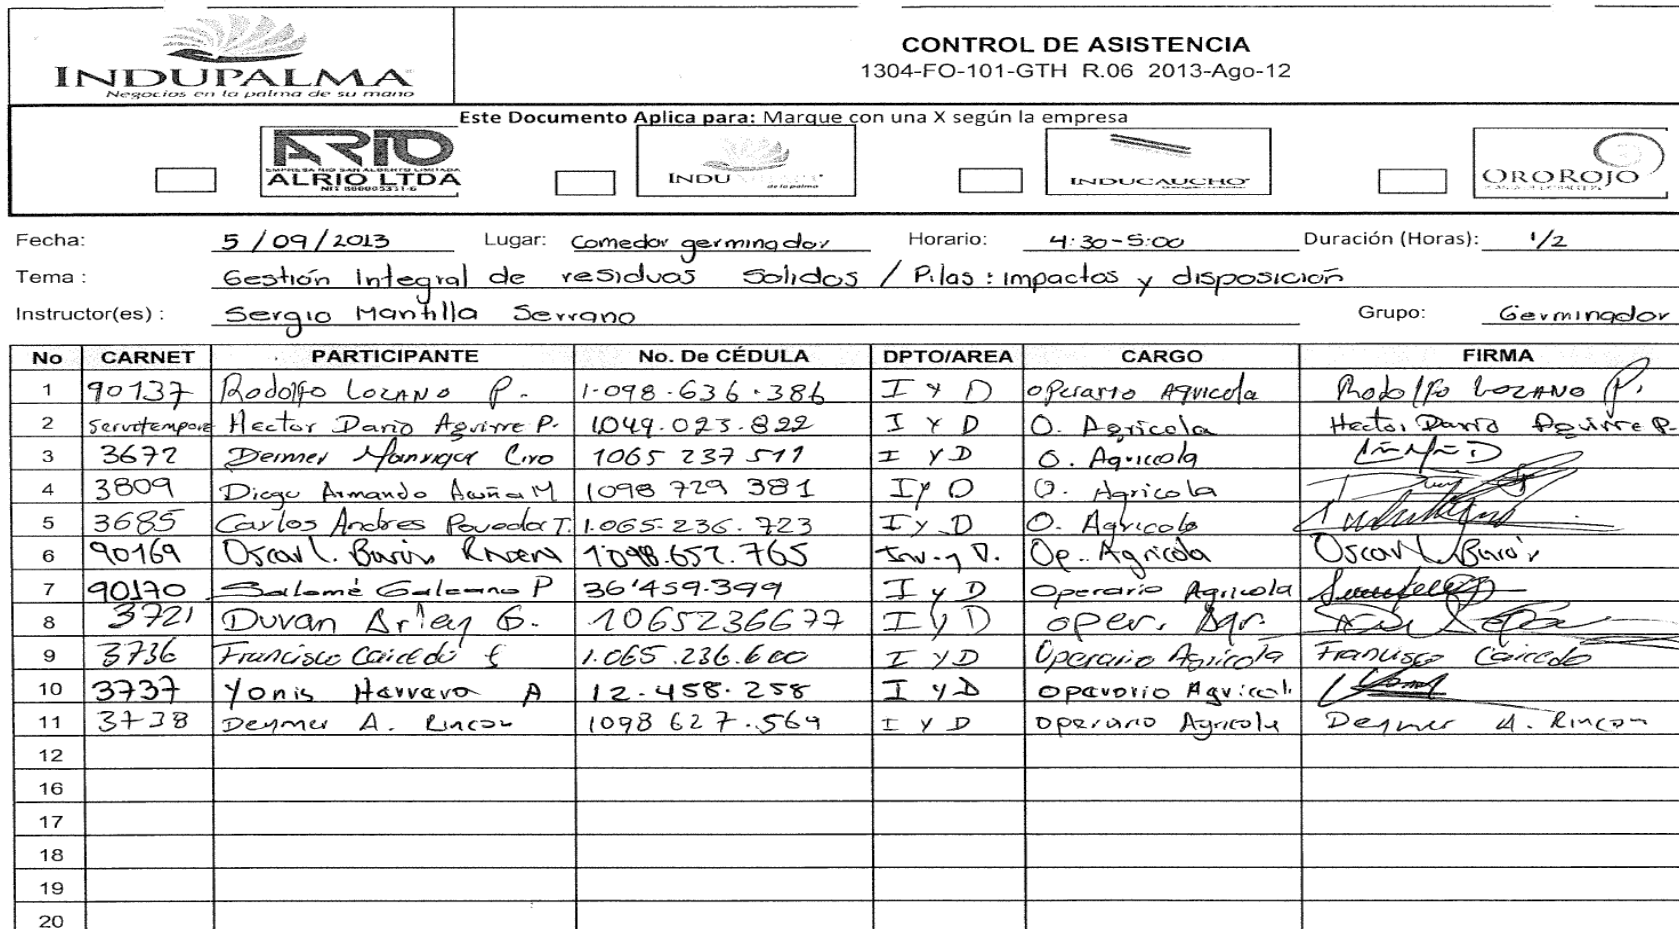 INDUPALMA
Negocios en la palma de su mano
CONTROL DE ASISTENCIA
1304-FO-101-GTH R.06 2013-Ago-12
Este Documento Aplica para: Marque con una X según la empresa
ARIO
EMPRESA RIO SAN ALBERTO LIMITADA
ALRIO LTDA
INDU
de la palma
INDUCAUCHO
OROROJO
Fecha: 5/09/2013 Lugar: Comedor germinador Horario: 4:30-5:00 Duración (Horas): 1/2
Tema : Gestión Integral de residuos Solidos / Pilas: impactos y disposición
Instructor(es) : Sergio Mantilla Serrano Grupo: Germinador
No CARNET PARTICIPANTE No. De CÉDULA DPTO/AREA CARGO FIRMA
1 90137 Rodolfo Lozano P. 1.098.636.386 I y D operario Agricola Rodolfo Lozano P.
2 Servitempore Hector Dario Aguirre P. 1049.023.822 I y D O. Agricola Hector Dario Aguirre P.
3 3672 Deimer Manrique Ciro 1065 237 511 I y D O. Agricola
4 3809 Diego Armando Acuña M 1098 729 381 I y D O. Agricola
5 3685 Carlos Andres Poveda T. 1.065.236.723 I y D O. Agricola
6 90169 Oscar L. 1098.657.765 Inv. y D. Op. Agricola Oscar L.
7 90170 Salomé Galeano P 36'459.399 I y D Operario Agricola
8 3721 Duvan Arley G. 1065236677 I y D oper. Agr.
9 3736 Francisco Caicedo 1.065.236.600 I y D Operario Agricola Francisco Caicedo
10 3737 Yonis Herrera A 12.458.258 I y D operario Agricol.
11 3738 Deymer A. Rincon 1098 627.569 I y D operario Agricola Deymer A. Rincon
12
16
17
18
19
20